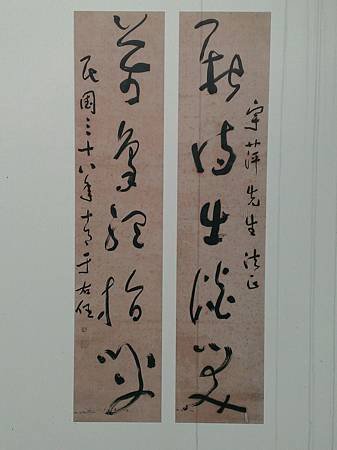 宇萍先生法正
詩生談笑
萬象指
民国三十八年十月于右任